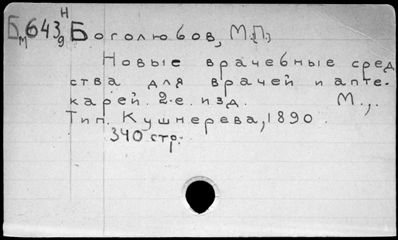 Н
Б 643 Боголюбов, М.П.
м 9
Новые врачебные сред
ства для врачей и апте-
карей. 2-е. изд. М.,
Тип. Кушнерева, 1890.
340 стр.